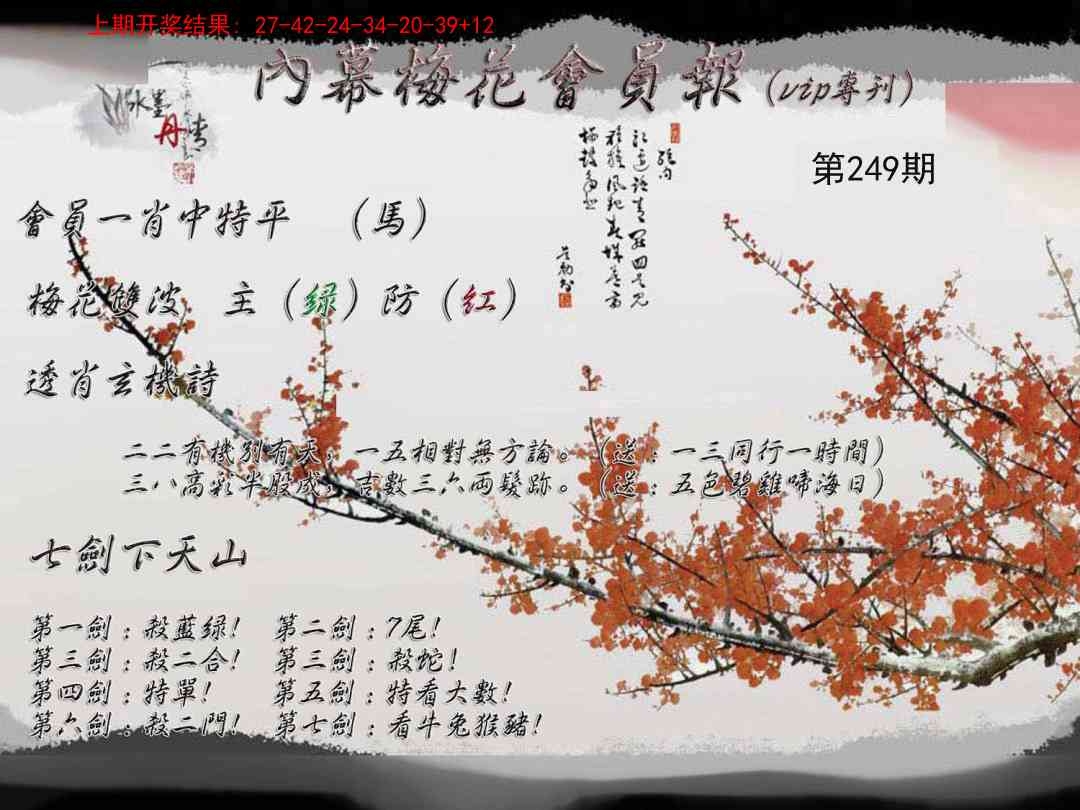 上期开奖结果: 27-42-24-34-20-39+12
內幕梅花會員報(vip專刊)
水墨
丹青
第249期
會員一肖中特平 (馬)
梅花雙波 主(绿)防(红)
透肖玄機詩
二二有機別有天,一五相對無方論。(送:一三同行一時間)
三八高彩半股成,吉數三六兩髮跡。(送:五色碧雞啼海日)
七劍下天山
第一劍:殺藍绿! 第二劍:7尾!
第三劍:殺二合! 第三劍:殺蛇!
第四劍:特單! 第五劍:特看大數!
第六劍:殺二門! 第七劍:看牛兔猴豬!